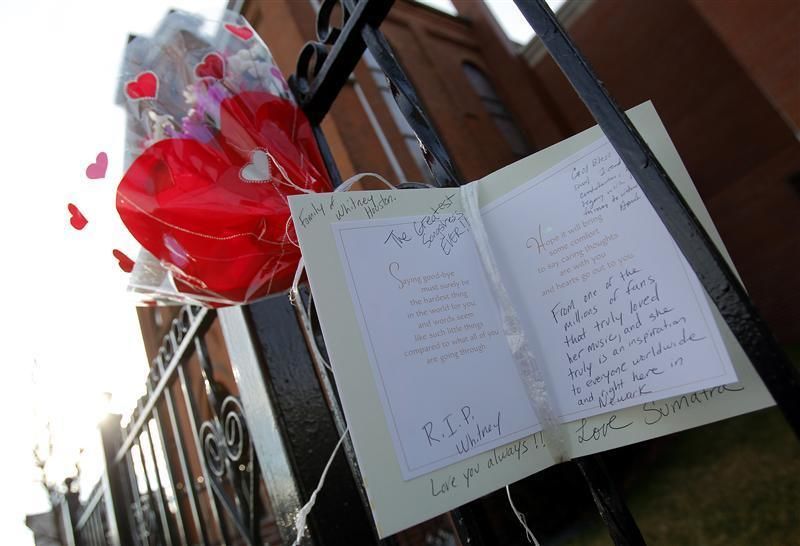 Family of Whitney Houston.
The Greatest
Songstress
EVER!!
Saying good-bye
must surely be
the hardest thing
in the world for you
and words seem
like such little things
compared to what all of you
are going through.
R.I.P.
Whitney
Love you always!!
God Bless
Hope it will bring
some comfort
to say caring thoughts
are with you
and hearts go out to you.
From one of the
millions of fans
that truly loved
her music, and she
truly is an inspiration
to everyone worldwide
and right here in
Newark
Love Sumatra